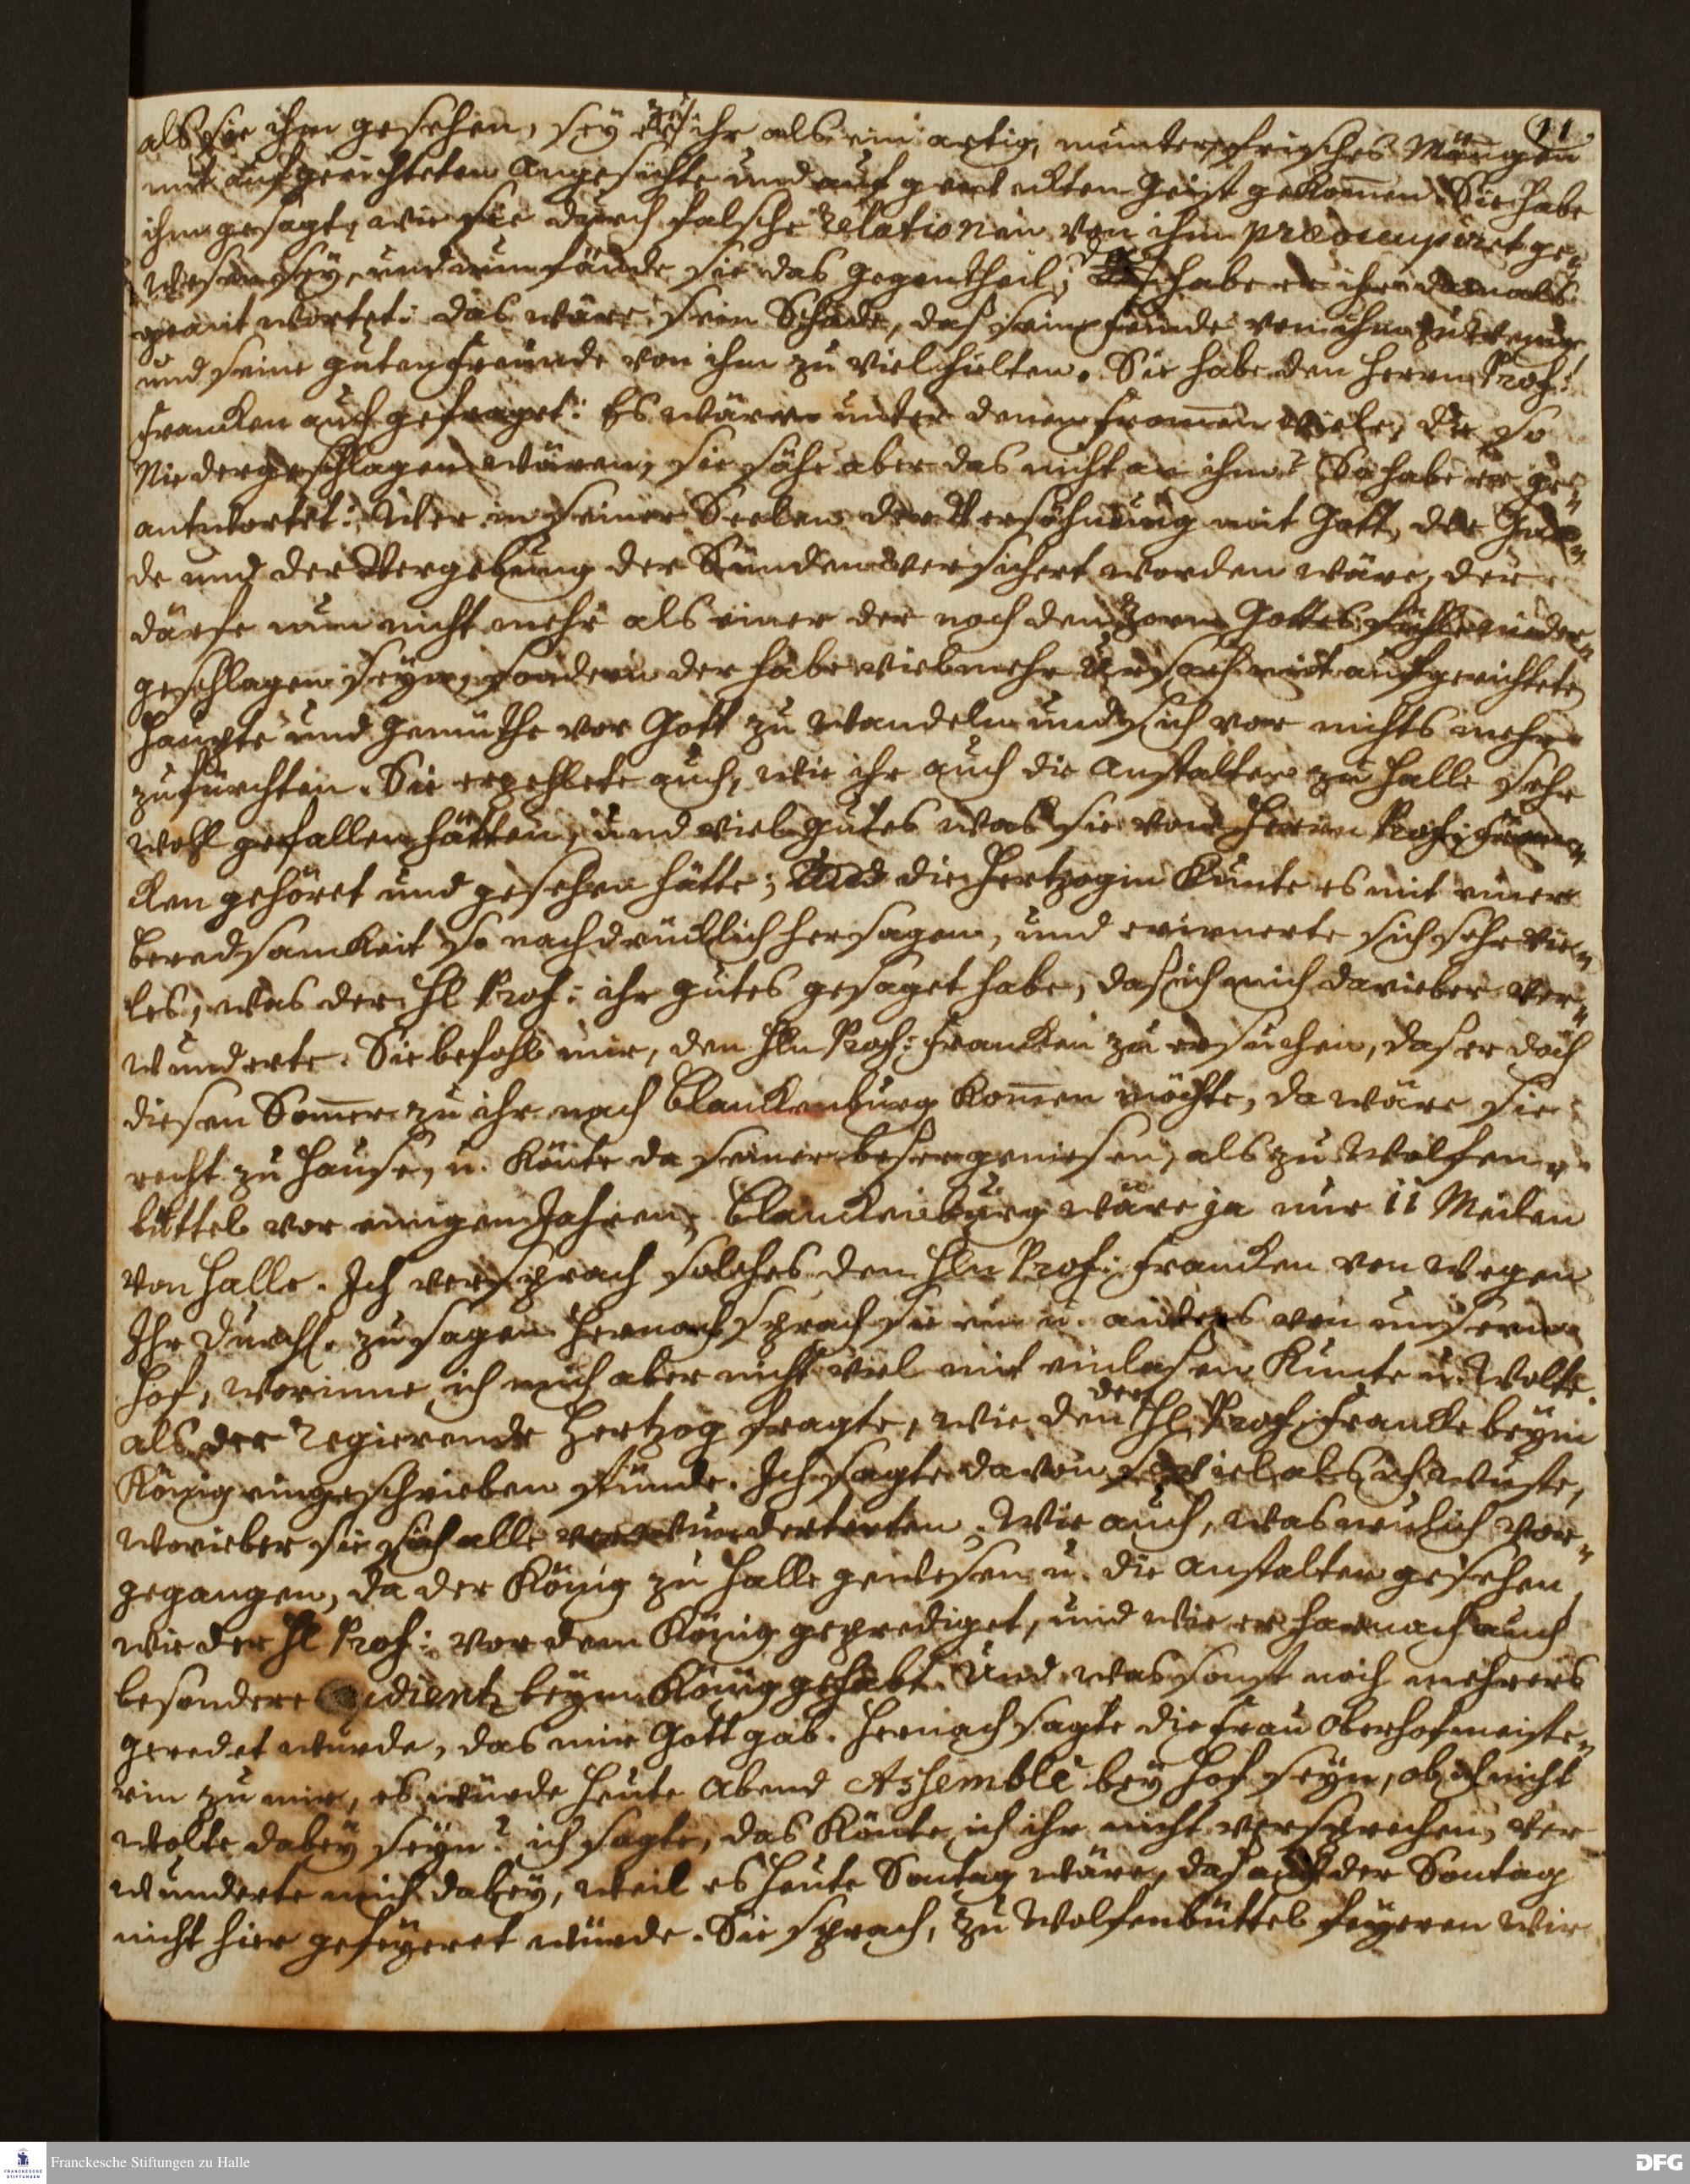 11.
als sie ihm gesehen, sey er zu ihr als ein artig, munter, frisches Mängen
mit aufgerichteten Angesichte und aufgeweckten Geist gekom̄en. Sie habe
ihm gesagt, wie sie durch falsche Relationen von ihm præoccupiret ge-
wesen sey, und nun fände sie das Gegentheil; da habe er ihr damals
geantwortet: das wäre sein Schade, daß seine Feinde von ihm zu wenig
und seine guten Freunde von ihm zu viel hielten. Sie habe den Herrn Prof:
Francken auch gefraget: Es wären unter denen From̄en viele, die so
Niedergeschlagen wären, sie sähe aber das nicht an ihm? So habe er ge-
antwortet: Wer in seiner Seelen der Versöhnung mit Gott, der Gna-
de und der Vergebung der Sünden versichert worden wäre, der
därfe nun nicht mehr als einer der noch den Zorn Gottes fühlt nieder-
geschlagen seyn, sondern der habe vielmehr Ursach mit aufgerichteten
Haupte und Gemüthe vor Gott zu wandeln und sich vor nichts mehr
zu fürchten. Sie erzehlete auch, wie ihr auch die Anstalten zu Halle sehr
wohl gefallen hätten, und viel gutes was sie von Herrn Prof: Fran-
cken gehöret und gesehen hätte; Und die Hertzogin kunte es mit einer
Beredsamkeit so nachdrücklich hersagen, und erinnerte sich sehr vie-
les, was der Hl Prof: ihr gutes gesaget habe, daß ich mich darieber ver-
wunderte. Sie befahl mir, den Hln Prof: Francken zu ersuchen, daß er doch
diesen Som̄er zu ihr nach Blanckenburg kom̄en möchte, da wäre sie
recht zu Hause, u. könte da seiner beßer genießen, als zu Wolfen-
büttel vor einigen Jahren, Blanckenburg wäre ja nur 11 Meilen
von Halle. Ich versprach solches dem Hln Prof: Francken von wegen
Ihr Durchl. zu sagen. Hernach sprach sie ein u. anders von unserm
Hof, worinne ich mich aber nicht viel mit einlaßen kunte u. wolte.
als der Regierende Hertzog fragte, wie den der Hl. Prof: Francke beym
König eingeschrieben stünde. Ich sagte davon so viel als ich wuste,
worieber sie sich alle verwunderten. Wie auch, was neulich vor-
gegangen, da der König zu Halle gewesen u. die Anstalten gesehen,
wie der Hl Prof: vor dem König geprediget, und wie er harnach auch
besondere Audientz beym König gehabt. Und was sonst noch mehrers
geredet wurde, das mir Gott gab. Hernach sagte die Frau Oberhofmeiste-
rin zu mir, es würde heute Abend Assemblé bey Hof seyn, ob ich nicht
wolte dabey seyn? ich sagte, das könte ich ihr nicht versprechen, ver
wunderte mich dabey, weil es heute Sontag wäre, daß auch der Sontag
nicht hier gefeyeret würde. Sie sprach, zu Wolfenbüttel feyeren wir
Franckesche Stiftungen zu Halle
DFG